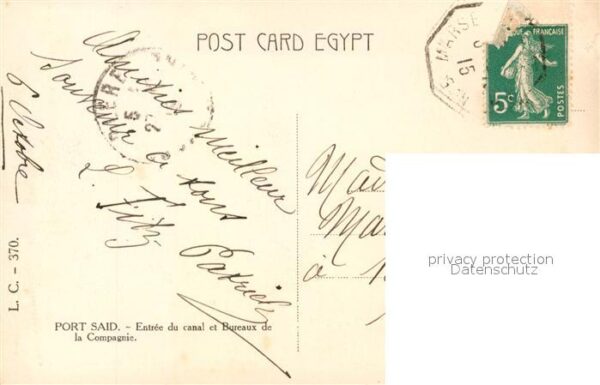 POST CARD EGYPT
Amitiés meilleur
souvenir a tous
L. Fitz Patrick
6 Octobre
L. C. - 370.
PORT SAID. - Entrée du canal et Bureaux de
la Compagnie.
MARSE
15
RÉPUBLIQUE FRANÇAISE
5c
POSTES
Ma
à
privacy protection
Datenschutz